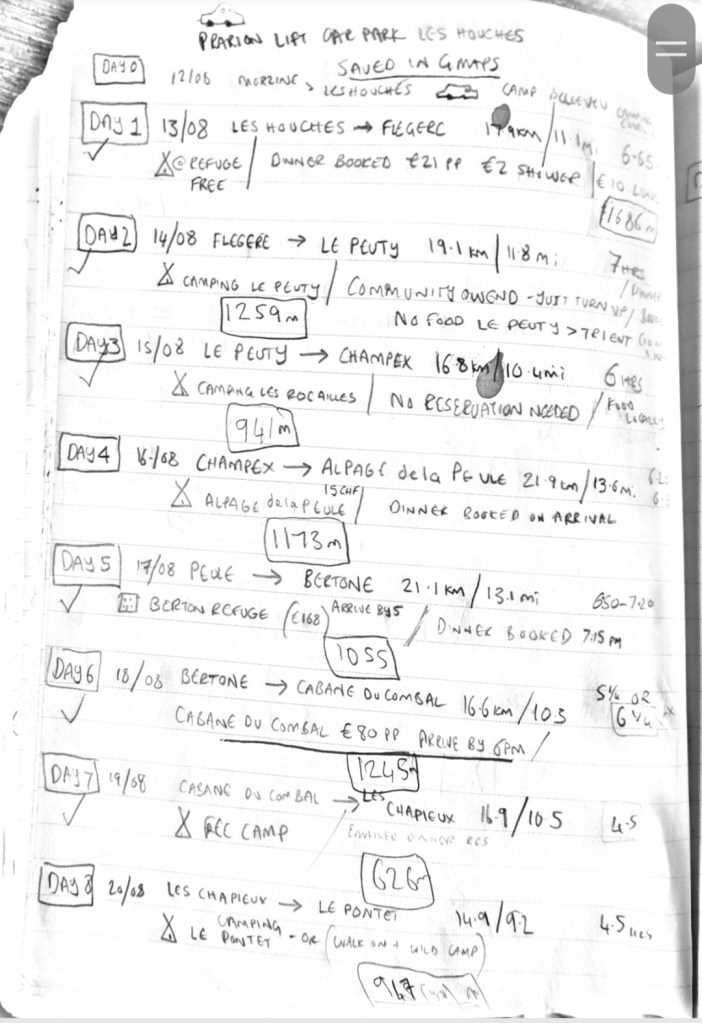 PRARION LIFT CAR PARK LES HOUCHES
SAVED IN GMAPS
DAY 0 12/08 MORZINE > LES HOUCHES CAMP BELLEVEU
DAY 1 13/08 LES HOUCHES → FLEGERE 17.9km/11.1mi 6-65
@ REFUGE FREE / DINNER BOOKED €21 PP €2 SHOWER / €10
1686m
DAY 2 14/08 FLEGERE → LE PEUTY 19.1 km/11.8 mi 7 HRS
CAMPING LE PEUTY / COMMUNITY OWEND - JUST TURN UP /
1259m NO FOOD LE PEUTY > TRIENT
DAY 3 15/08 LE PEUTY → CHAMPEX 16.8 km/10.4mi 6 HRS
CAMPING LES ROCAILLES / NO RESERVATION NEEDED / FOOD LOCALLY
941m
DAY 4 16/08 CHAMPEX → ALPAGE de la PEULE 21.9 km/13.6mi
ALPAGE de la PEULE 15CHF / DINNER BOOKED ON ARRIVAL
1173m
DAY 5 17/08 PEULE → BERTONE 21.1 km/13.1 mi 650-7.20
BERTON REFUGE (€168) ARRIVE BY 5 / DINNER BOOKED 7:15 PM
1055
DAY 6 18/08 BERTONE → CABANE DU COMBAL 16.6 km/10.3 5½ OR 6¼
CABANE DU COMBAL €80 PP ARRIVE BY 6PM /
1245m
DAY 7 19/08 CABANE DU COMBAL → LES CHAPIEUX 16.9/10.5 4.5
FREE CAMP EMAILED DINNER RES
626m
DAY 8 20/08 LES CHAPIEUX → LE PONTET 14.9/9.2 4.5 HRS
CAMPING LE PONTET - OR (WALK ON + WILD CAMP)
967